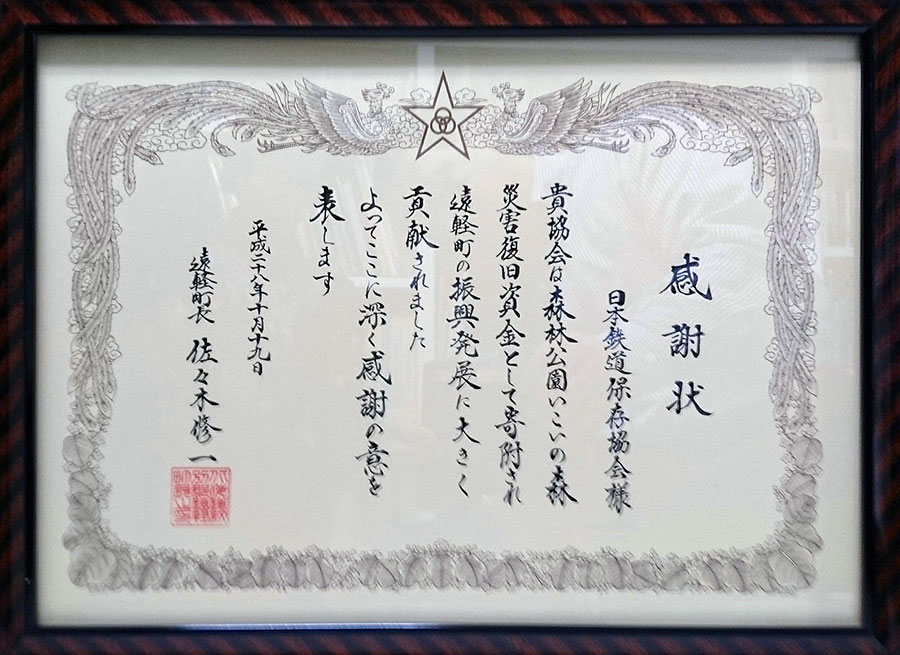 感謝状
日本鉄道保存協会様
貴協会は森林公園いこいの森
災害復旧資金として寄附され
遠軽町の振興発展に大きく
貢献されました
よってここに深く感謝の意を
表します
平成二十八年十月十九日
遠軽町長 佐々木修一